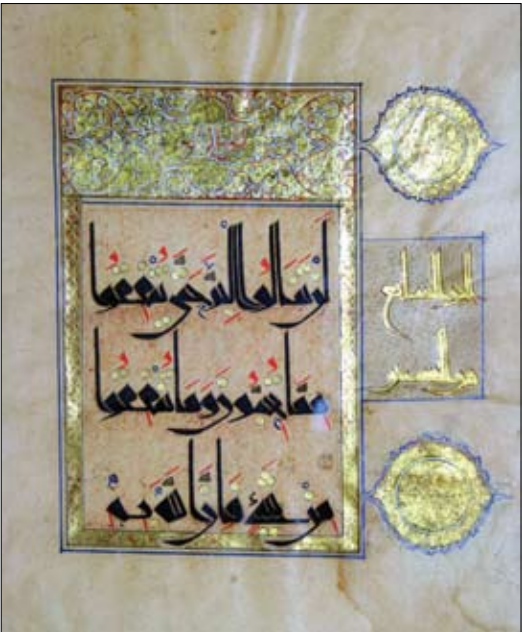 لَن تَنَالُوا الْبِرَّ حَتَّىٰ تُنفِقُوا
مِمَّا تُحِبُّونَ وَمَا تُنفِقُوا
مِن شَيْءٍ فَإِنَّ اللَّهَ بِهِ
الجز السابع
من الستين